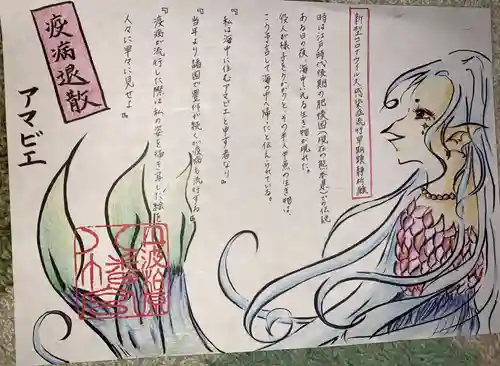 新型コロナウイルス感染症流行早期鎮静祈願
時は江戸時代後期の肥後国(現在の熊本県)の伝説
ある日の夜、海中に光る生き物が現れた。
役人が様子をうかがうと、その半人半魚の生き物は、
こう予言して海の中へ帰ったと伝えられている。
『私は海中に住むアマビエと申す者なり』
『当年より諸国で豊作が続くが疫病も流行する』
『疫病が流行した際は私の姿を描き写した絵を
人々に早々に見せよ』
疫病退散
アマビエ